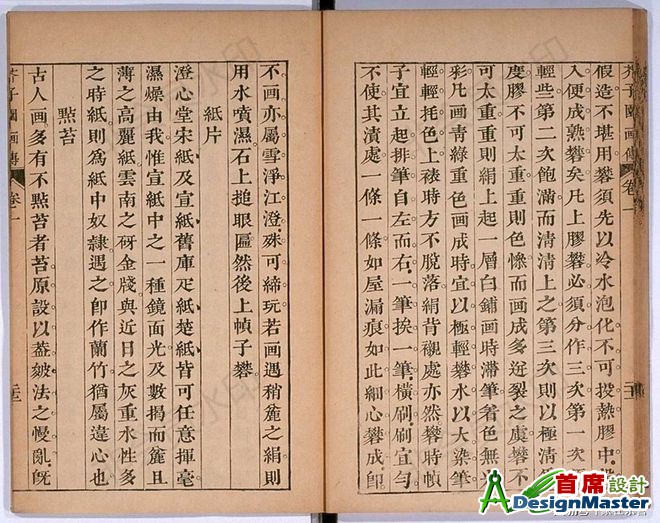 芥子園画傳 卷一
假造不堪用。礬須先以冷水泡化。不可投熱膠中。
入便成熟礬矣。凡上膠礬必須分作三次。第一次
輕些。第二次飽滿而清清上之。第三次則以極清
度膠不可太重。重則色慘而画成多迸裂之虞。礬不
可太重。重則絹上起一層白鋪。画時滯筆。着色無光
彩。凡画青綠重色。画成時宜以極輕礬水。以大染筆
輕輕托色上。裱時方不脫落。絹背襯處亦然。礬時幀
子宜立起。排筆自左而右。一筆挨一筆。橫刷刷宜勻
不使其漬處一條一條如屋漏痕。如此細心礬成。即
不画亦屬雪淨江澄。殊可締玩。若画遇稍麄之絹。則
用水噴濕。石上搥眼匾。然後上幀子礬
紙片
澄心堂宋紙及宣紙舊庫疋紙楚紙。皆可任意揮毫
濕燥由我。惟宣紙中之一種鏡面光。及數揭而麄且
薄之高麗紙。雲南之砑金牋。與近日之灰重水性多
之時紙。則為紙中奴隸。遇之即作蘭竹。猶屬違心也
點苔
古人画多有不點苔者。苔原設以葢皴法之慢亂。既
芥子園画傳 卷一
首席設計
DesignMaster